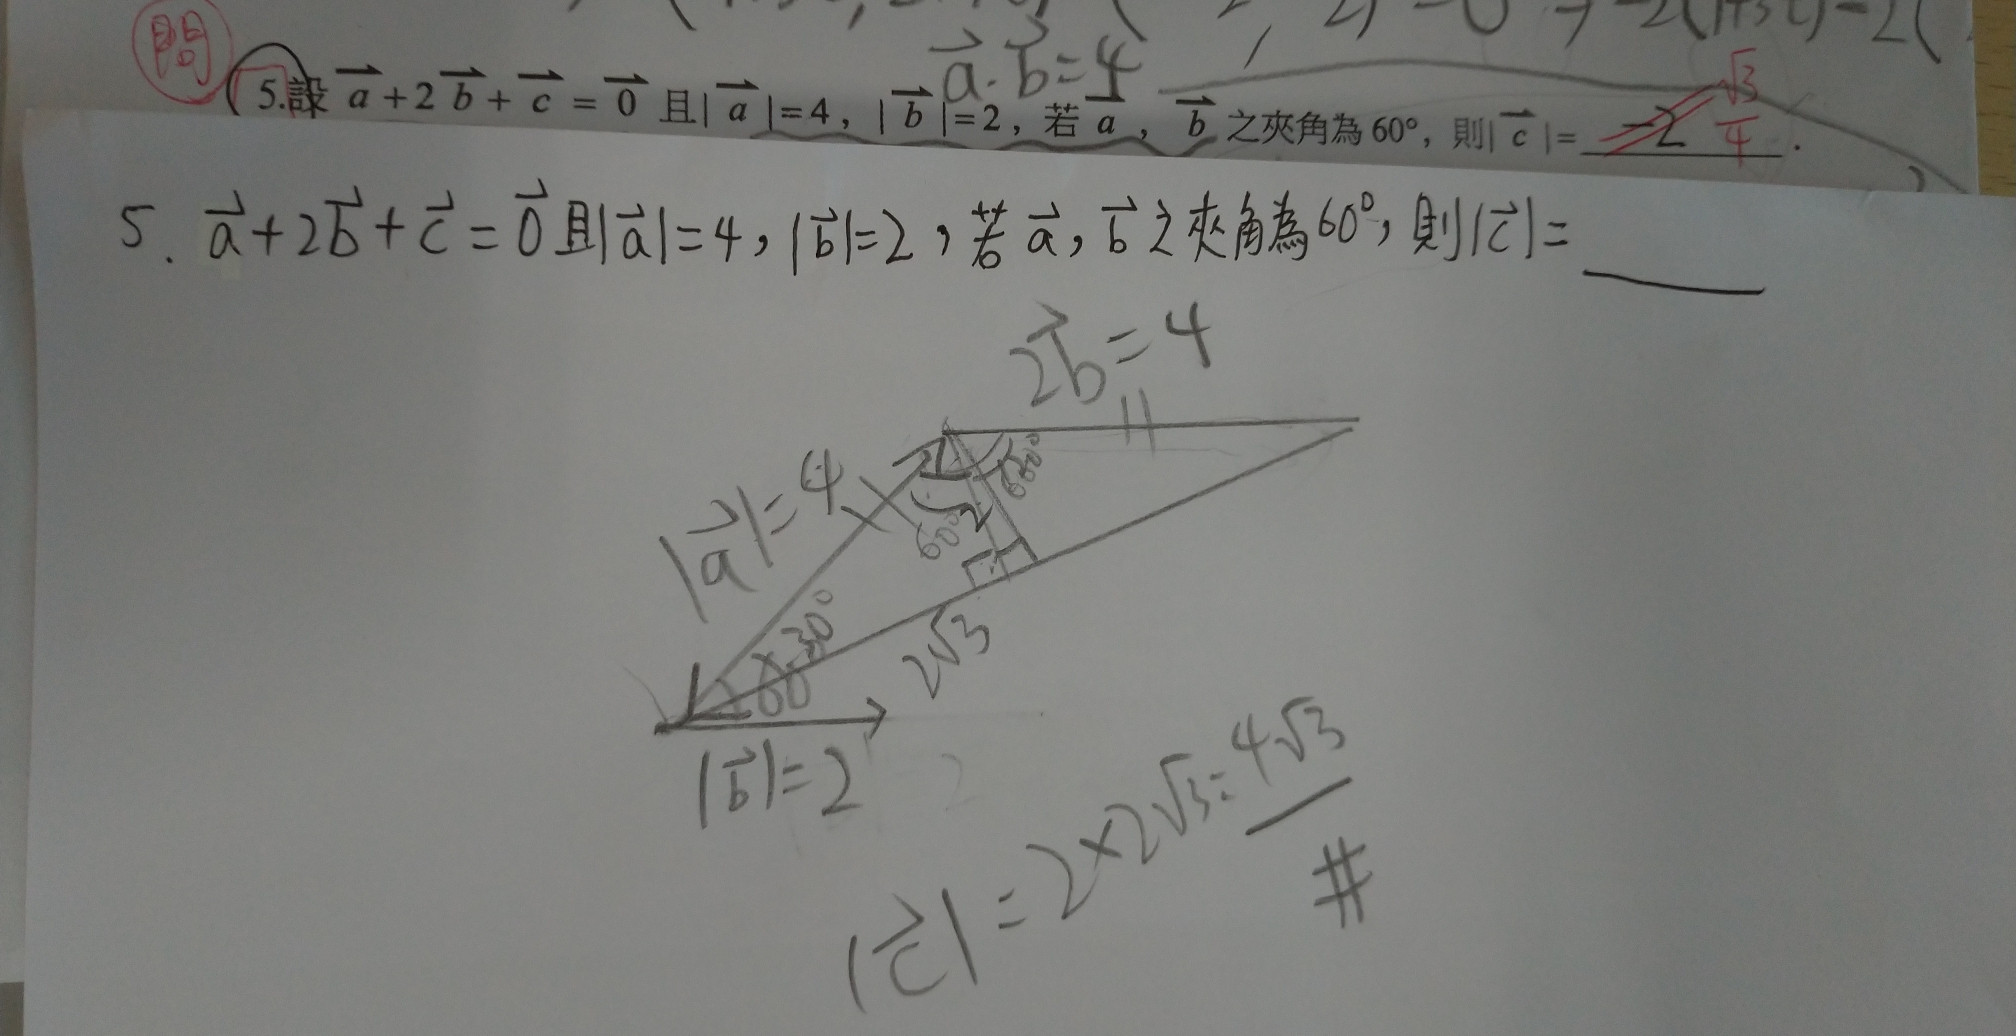 問
\vec{a}·\vec{b}=4
5.設 \vec{a}+2\vec{b}+\vec{c}=\vec{0} 且|\vec{a}|=4，|\vec{b}|=2，若\vec{a}，\vec{b} 之夾角為60°，則|\vec{c}|= -2 .
√3/4
5. \vec{a}+2\vec{b}+\vec{c}=\vec{0}且|\vec{a}|=4，|\vec{b}|=2，若\vec{a}，\vec{b}之夾角為60°，則|\vec{c}|=
2\vec{b}=4
|\vec{a}|=4
60°
60°
2
30°
2√3
|\vec{b}|=2
|\vec{c}|=2×2√3=4√3
#